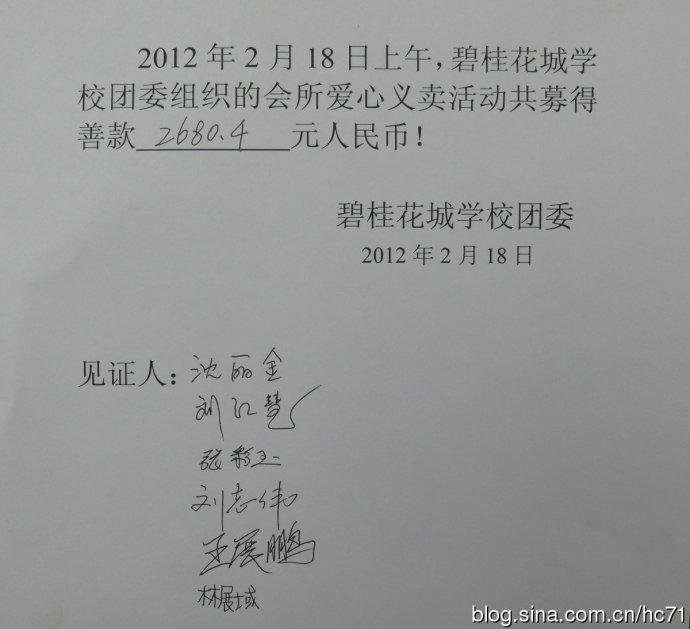 2012 年 2 月 18 日上午，碧桂花城学
校团委组织的会所爱心义卖活动共募得
善款 2680.4 元人民币！
碧桂花城学校团委
2012 年 2 月 18 日
见证人：沈丽金
刘红慧
张彩玉
刘志伟
王展鹏
林展域
blog.sina.com.cn/hc71